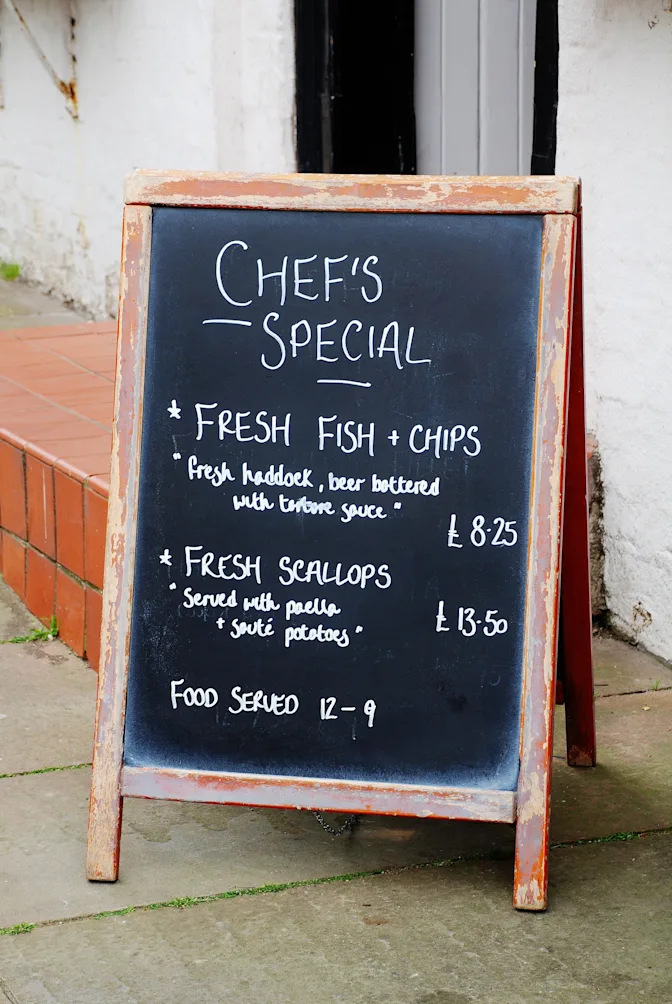 CHEF'S
SPECIAL
* FRESH FISH + CHIPS
"fresh haddock, beer battered
with tartare sauce"
£ 8·25
* FRESH SCALLOPS
"Served with paella
+ sauté potatoes"
£ 13·50
FOOD SERVED 12 - 9